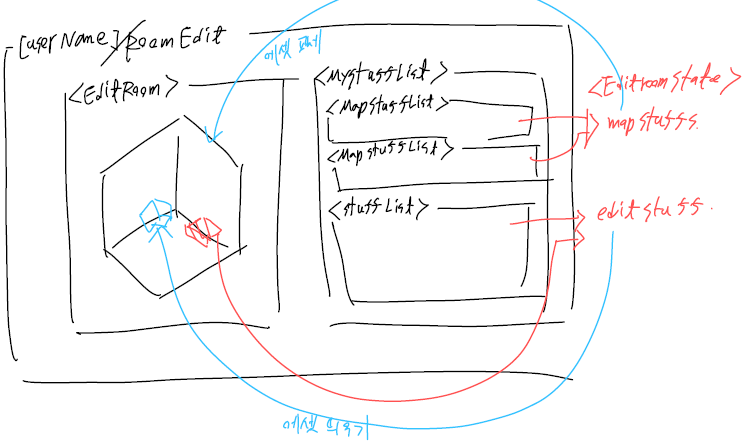 [userName]/RoomEdit
에셋 교체
<EditRoom>
<MystuffList>
<MapstuffList>
<MapstuffList>
<stuffList>
<EditroomState>
mapstuffs.
editstuff.
에셋